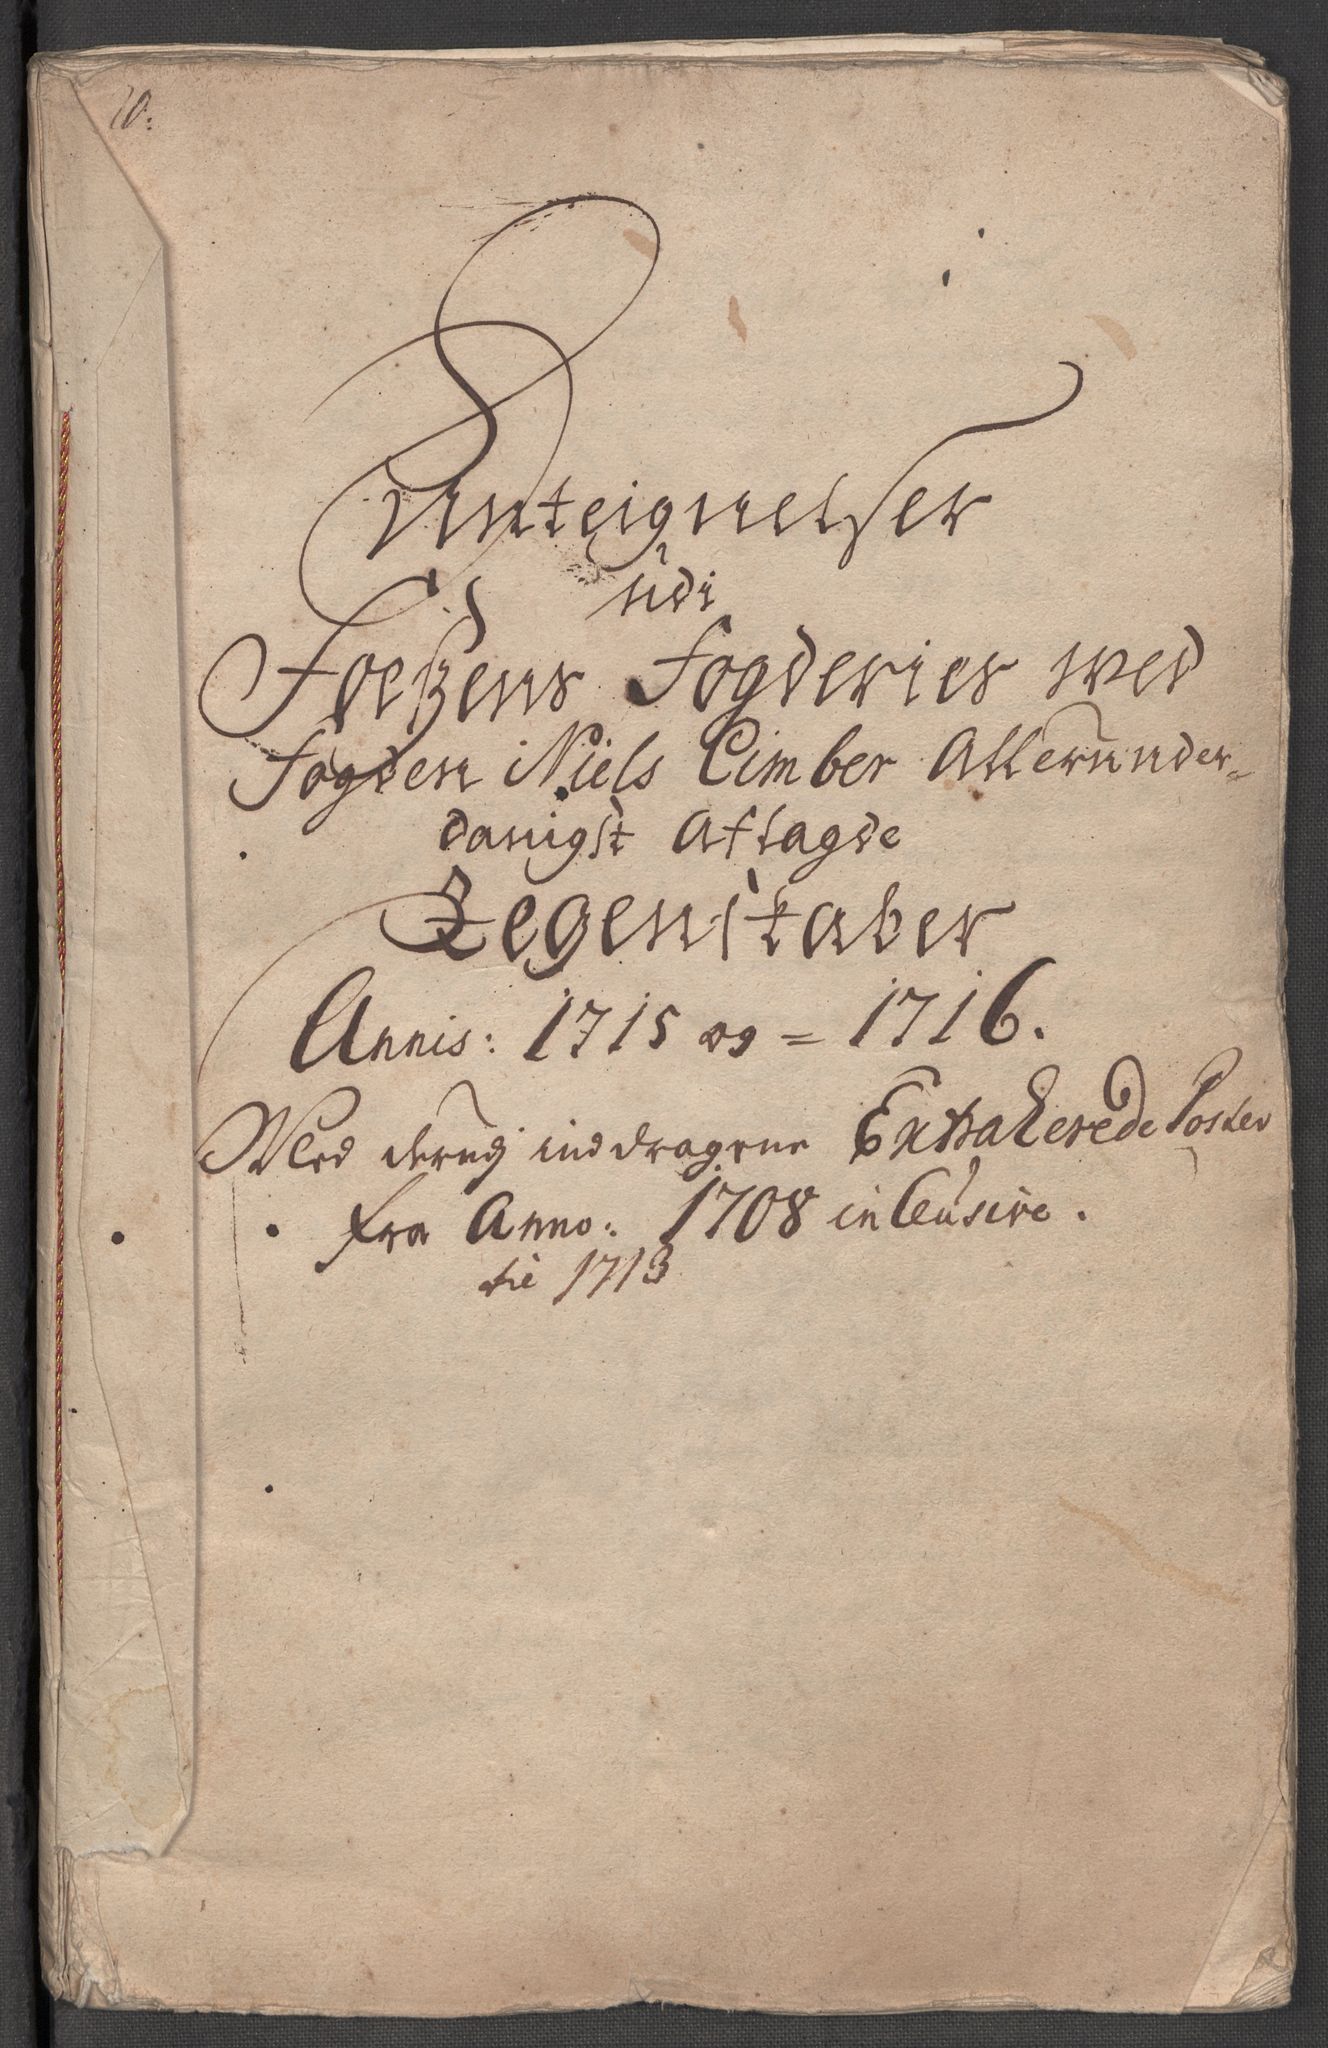 10:
Anteignelser
udi
Foeßens Fogderies wed
fogden Niels Cimber Allerunder-
danigst Aflagde
Regenskaber
Annis: 1715 og = 1716.
Med derudj inddragene Extraherede Poster
fra Anno: 1708 inclusive.
til 1713